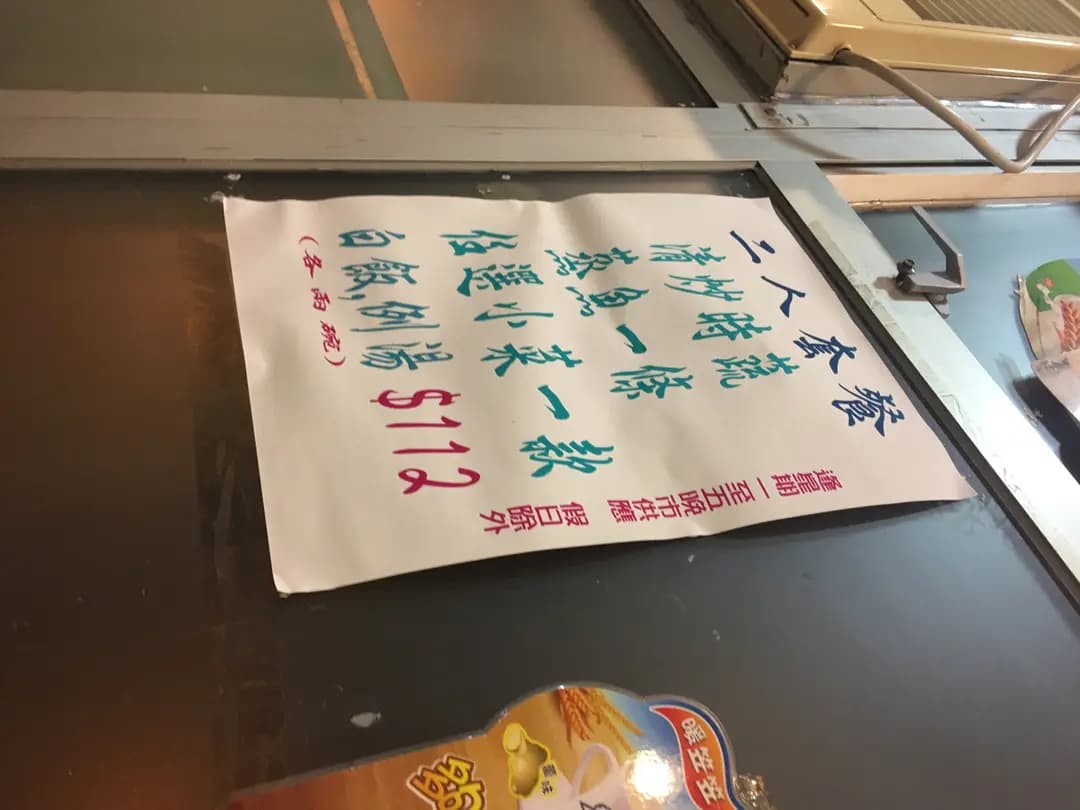 二人套餐
清炒時蔬
蒸魚一條
任選小菜一款
白飯,例湯 $112
(各兩碗)
逢星期一至五晚市供應 假日除外
暖笠笠
薑味